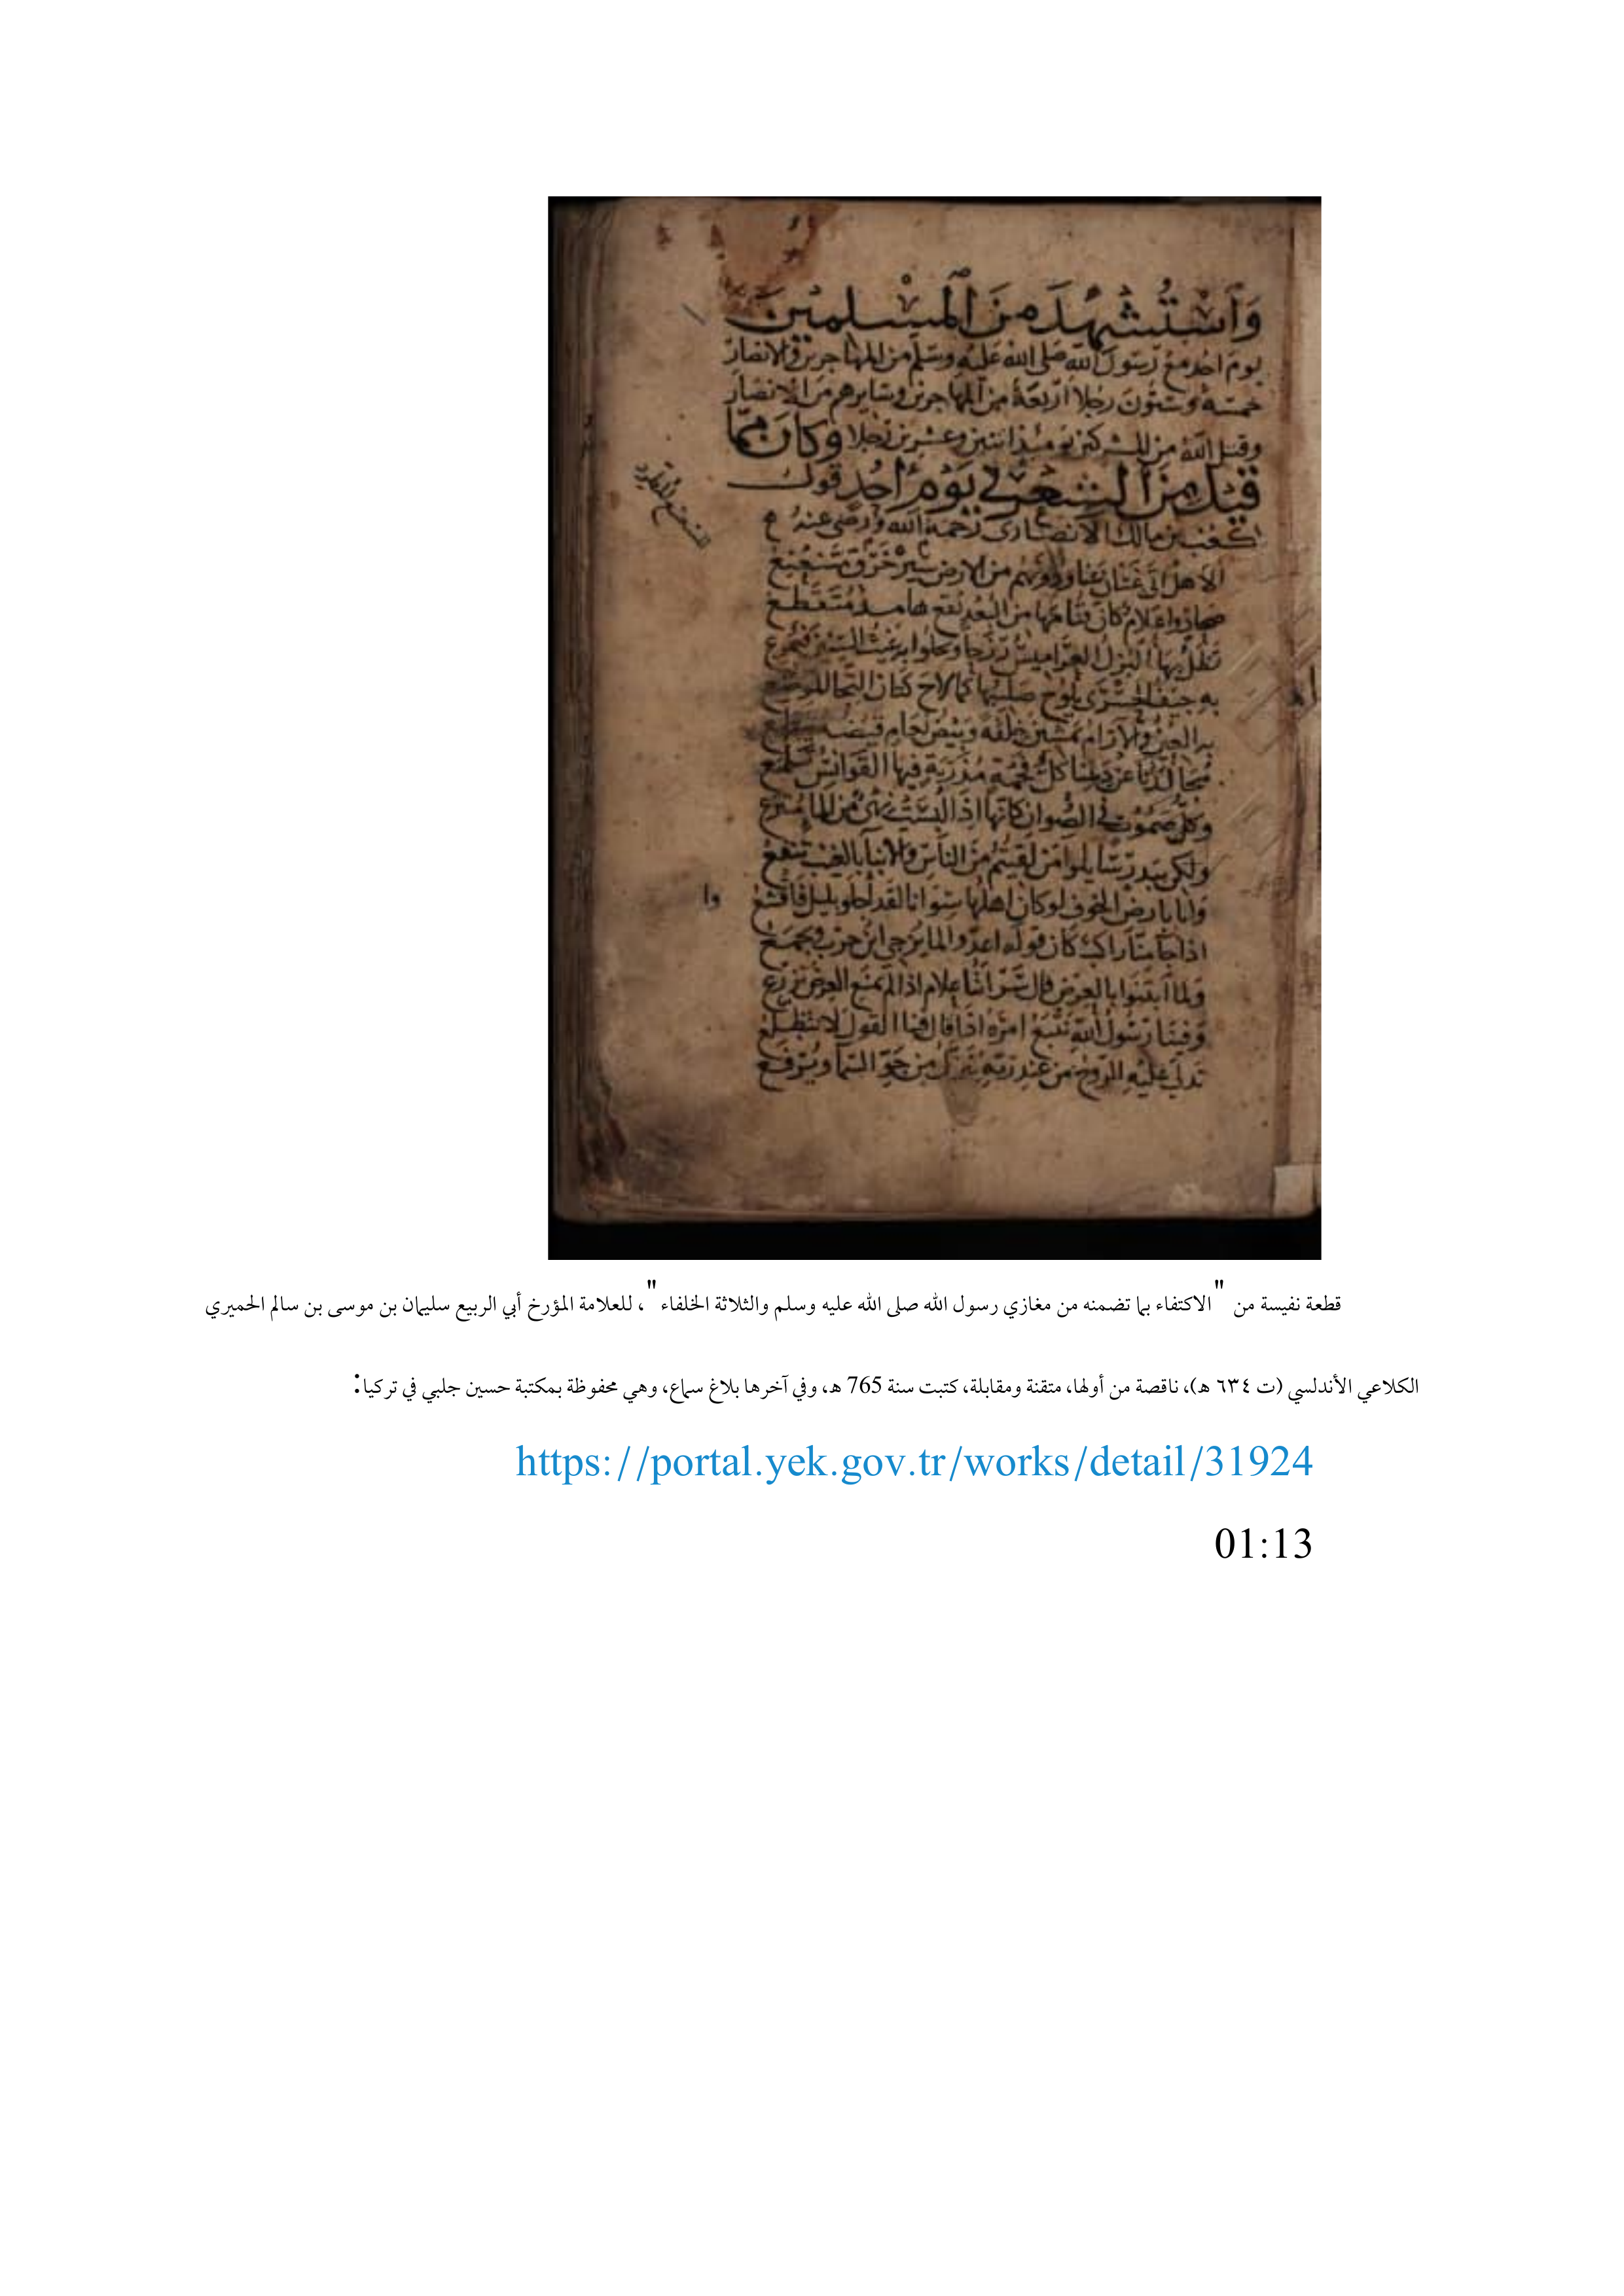 وَاسْتُشْهِدَ مِنَ الْمُسْلِمِيْنَ
يوم احد مع رَسُول الله صَلى الله عَليه وسَلم من المهاجرين والانصار
خمسَة وستون رجلا اربعَة من المهاجرين وسَايرهم من الانصَار
وقتل الله من المشركين يوميذ اثنين وعشرين رَجلا وكان مما
قيل من الشعر في يَوْم احُد قول
كعب بن مالك الانصَارى رَحمه الله ورضى عنه
الا هل اتى غسَّان عنا ودونهم من الارض خرق متنعنع
صحار واعلام كان قتامها من البُعد نقع هامد متقطع
تظل بها البزل العراميس رزحا ويحلوا به غيث السنين فيمرع
به جيف الحسرى يلوح صليبها كما لاح كتان التجار الموضع
به العين والارام يمشين خلفة وبيض نعام قيضه
مجالدنا عن ديننا كل فخمة مذربة فيها القوانس تلمع
وكل صموت في الصوان كانها اذا لبست نهى من الما مترع
ولكن ببدر سَايلوا من لقيتم من الناس والانبا بالغيب تنفع
وانا بارض الخوف لو كان اهلها سوانا لقد اجلو بليل فاقشعوا
اذا جا منا راكب كان قوله اعدوا لما يزجى ابن حرب ويجمع
ولما ابتنوا بالعرض قال سَرَاتنا علام اذا لم نمنع العرض نزرع
وفينا رَسُول الله نتبع امره اذا قال فينا القول لا نتظلع
تدلى عليه الروح من عند ربه ينزل من جو السما ويرفع
قطعة نفيسة من "الاكتفاء بما تضمنه من مغازي رسول الله صلى الله عليه وسلم والثلاثة الخلفاء"، للعلامة المؤرخ أبي الربيع سليمان بن موسى بن سالم الحميري
الكلاعي الأندلسي (ت ٦٣٤ هـ)، ناقصة من أولها، متقنة ومقابلة، كتبت سنة 765 هـ، وفي آخرها بلاغ سماع، وهي محفوظة بمكتبة حسين جلبي في تركيا:
https://portal.yek.gov.tr/works/detail/31924
01:13